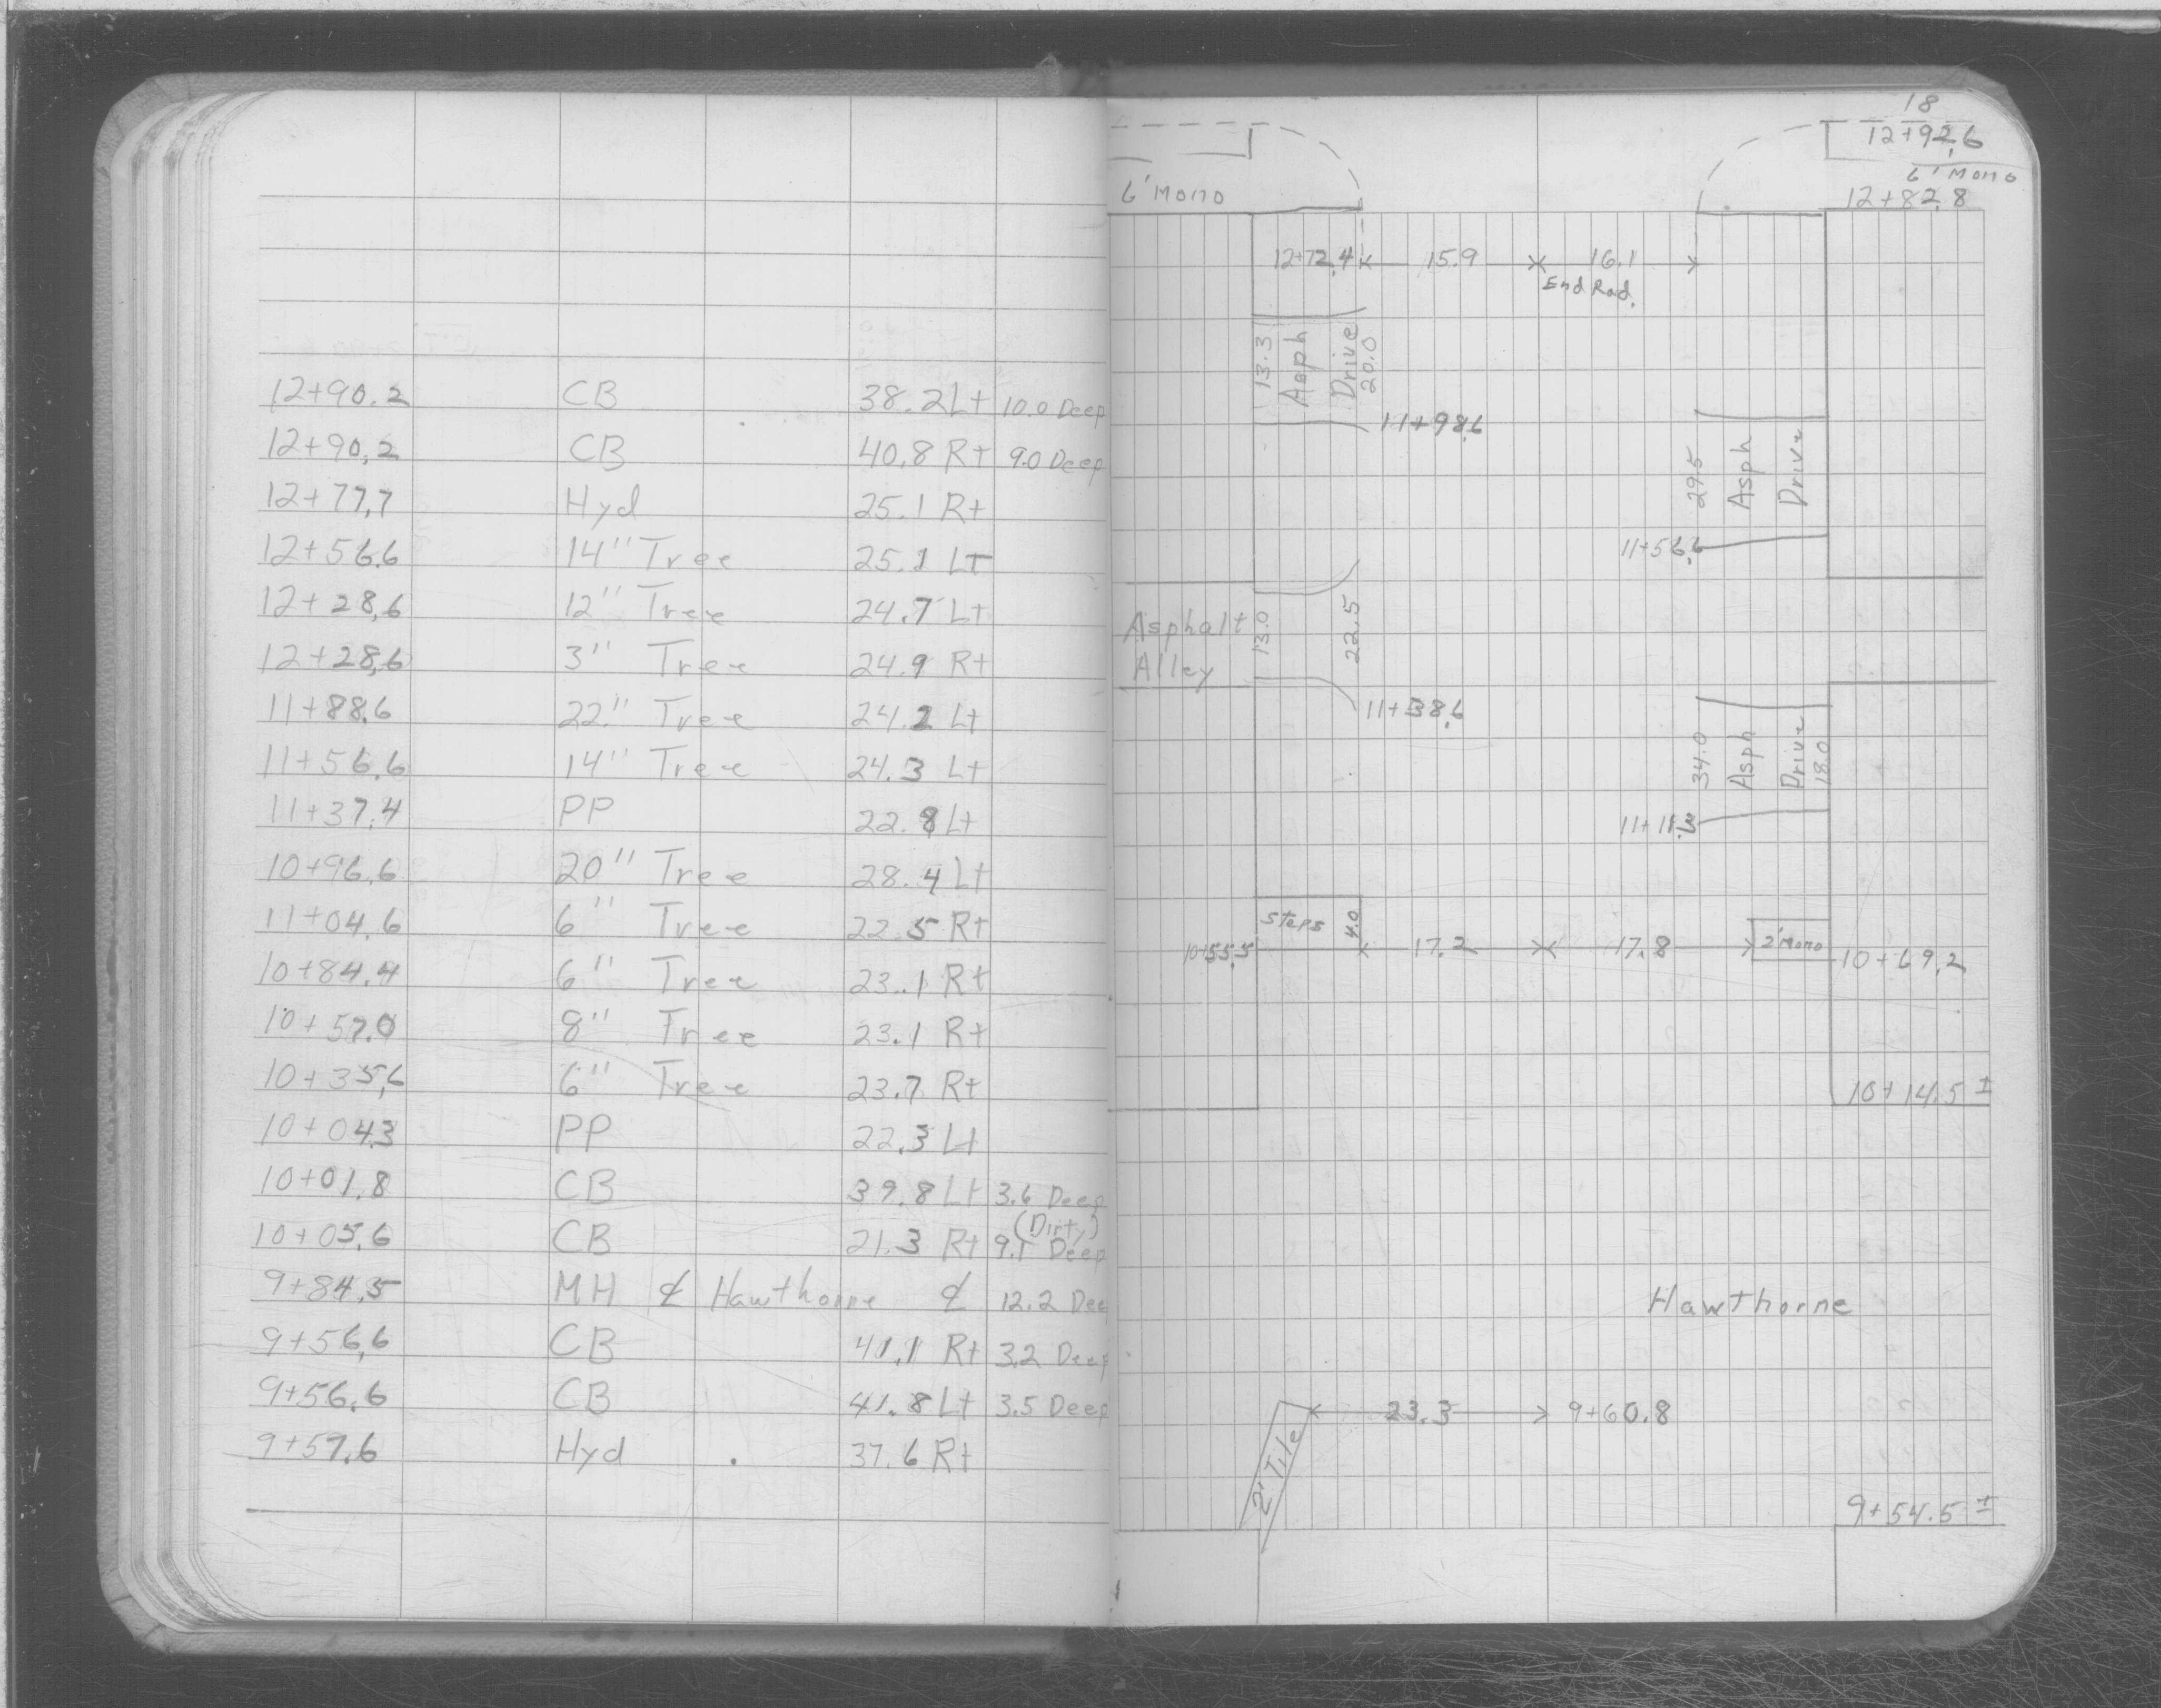 12+90.2 CB 38.2 Lt 10.0 Deep
12+90.2 CB 40.8 Rt 9.0 Deep
12+77.7 Hyd 25.1 Rt
12+56.6 14" Tree 25.1 Lt
12+28.6 12" Tree 24.7 Lt
12+28.6 3" Tree 24.9 Rt
11+88.6 22" Tree 24.2 Lt
11+56.6 14" Tree 24.3 Lt
11+37.4 PP 22.8 Lt
10+96.6 20" Tree 28.4 Lt
11+04.6 6" Tree 22.5 Rt
10+84.4 6" Tree 23.1 Rt
10+57.0 8" Tree 23.1 Rt
10+35.6 6" Tree 23.7 Rt
10+04.3 PP 22.3 Lt
10+01.8 CB 39.8 Lt 3.6 Deep
(Dirty)
10+05.6 CB 21.3 Rt 9.1 Deep
9+84.5 MH ℄ Hawthorne ℄ 12.2 Deep
9+56.6 CB 41.1 Rt 3.2 Deep
9+56.6 CB 41.8 Lt 3.5 Deep
9+57.6 Hyd 37.6 Rt
18
12+92.6
6' Mono
6' Mono
12+82.8
12+72.4 15.9 16.1
End Rad.
13.3 Asph Drive 20.0
11+98.6
29.5 Asph Drive
11+56.6
Asphalt
Alley
13.0 22.5
11+38.6
34.0 Asph Drive 18.0
11+11.3
Steps 4.0
10+55.5 17.2 17.8 2' Mono 10+69.2
10+14.5 ±
Hawthorne
23.3 9+60.8
2' Tile
9+54.5 ±